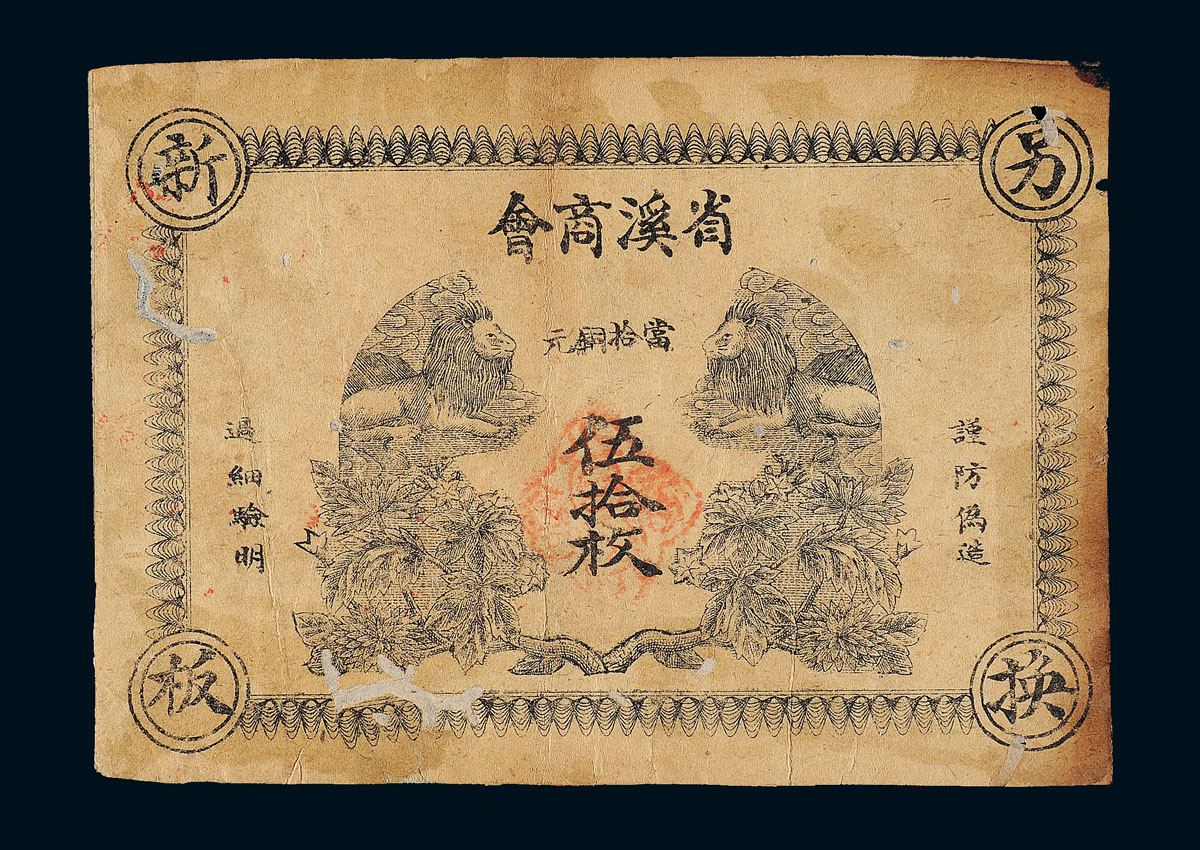 省溪商會
當拾銅元
伍拾枚
謹防偽造
過細驗明
另換
新板